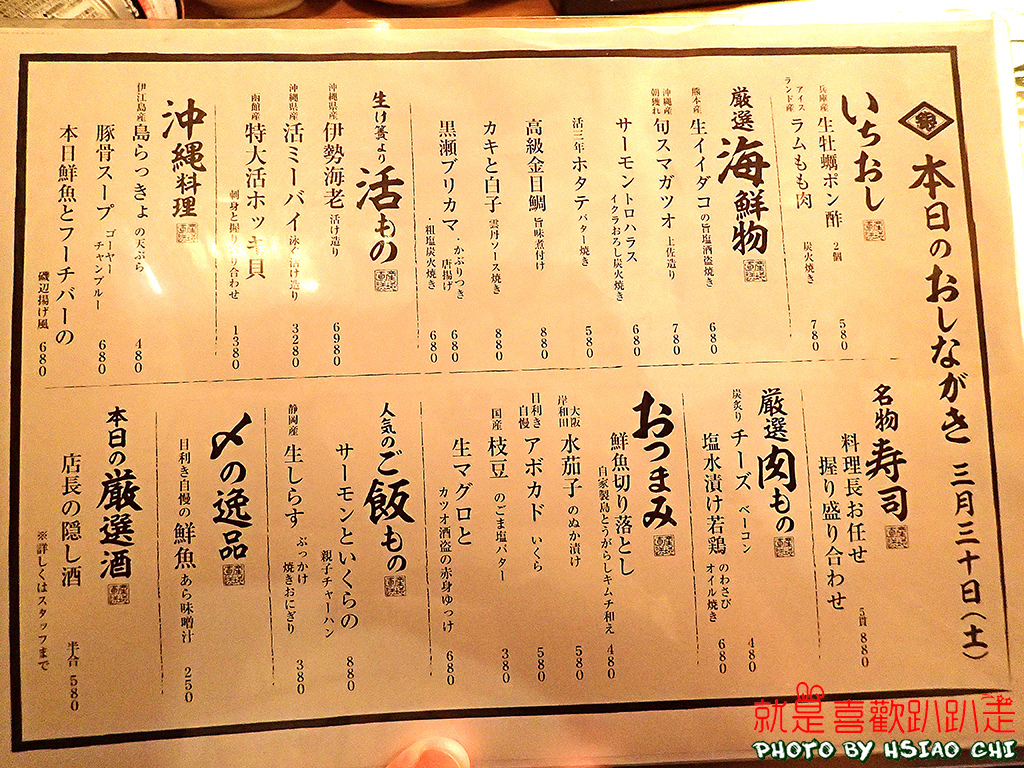 本日のおしながき 三月三十日(土)
いちおし
兵庫産 生牡蠣ポン酢 2個 580
アイスランド産 ラムもも肉 炭火焼き 780
厳選海鮮物
熊本産 生イイダコの旨塩酒盗焼き 680
沖縄産 朝獲れ 旬スマガツオ 土佐造り 780
サーモントロハラス イクラおろし炭火焼き 680
活三年ホタテ バター焼き 580
高級金目鯛 旨味煮付け 880
カキと白子 雲丹ソース焼き 880
黒瀬ブリカマ
・かぶりつき唐揚げ 680
・粗塩炭火焼き 680
生け簀より活もの
沖縄県産 伊勢海老 活け造り 6980
沖縄県産 活ミーバイ 泳ぐ活け造り 3280
函館産 特大活ホッキ貝 刺身と握り盛り合わせ 1380
沖縄料理
伊江島産 島らっきょの天ぷら 480
豚骨スープ ゴーヤーチャンプルー 680
本日鮮魚とフーチバーの磯辺揚げ風 680
名物寿司
料理長お任せ
握り盛り合わせ 5貫 880
厳選肉もの
炭炙り チーズベーコン 480
塩水漬け若鶏 のわさびオイル焼き 680
おつまみ
鮮魚切り落とし 自家製島とうがらしキムチ和え 480
大阪 岸和田 水茄子のぬか漬け 580
目利き自慢 アボカドいくら 580
国産 枝豆のごま塩バター 380
生マグロと
カツオ酒盗の赤身ゆっけ 680
人気のご飯もの
サーモンといくらの
親子チャーハン 880
静岡産 生しらす ぶっかけ焼きおにぎり 380
〆の逸品
目利き自慢の鮮魚あら味噌汁 250
本日の厳選酒
店長の隠し酒 半合 580
※詳しくはスタッフまで
就是喜歡趴趴走
PHOTO BY HSIAO CHI